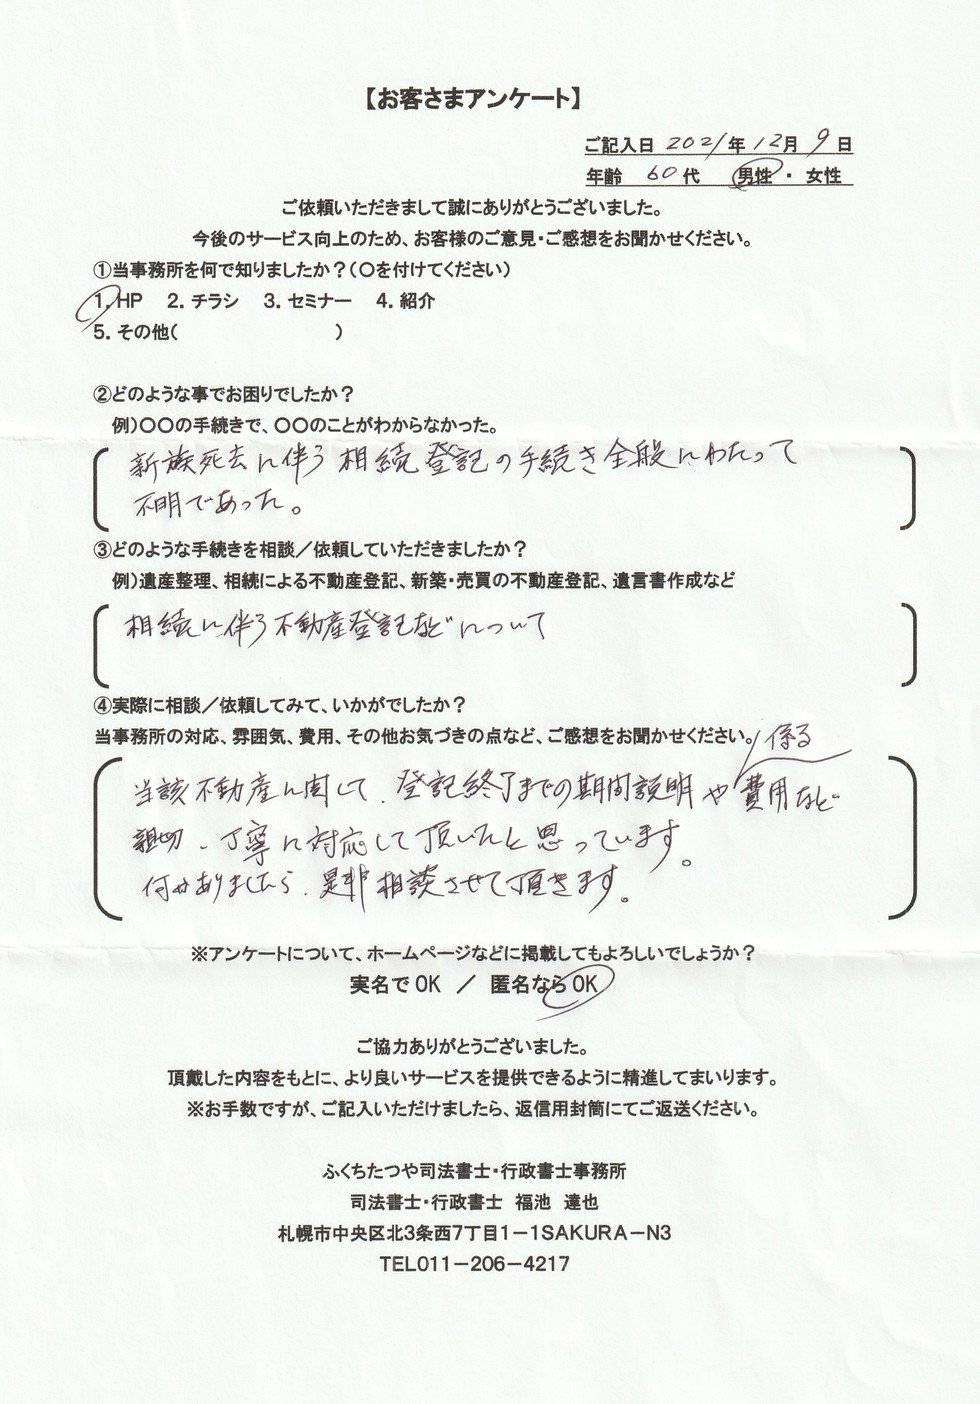 【お客さまアンケート】
ご記入日 2021年 12月 9日
年齢 60代 男性・女性
ご依頼いただきまして誠にありがとうございました。
今後のサービス向上のため、お客様のご意見・ご感想をお聞かせください。
①当事務所を何で知りましたか？（○を付けてください）
1. HP 2. チラシ 3. セミナー 4. 紹介
5. その他( )
②どのような事でお困りでしたか？
例）○○の手続きで、○○のことがわからなかった。
新族死去に伴う相続登記の手続き全般にわたって
不明であった。
③どのような手続きを相談／依頼していただきましたか？
例）遺産整理、相続による不動産登記、新築・売買の不動産登記、遺言書作成など
相続に伴う不動産登記などについて
④実際に相談／依頼してみて、いかがでしたか？
当事務所の対応、雰囲気、費用、その他お気づきの点など、ご感想をお聞かせください。
係る
当該不動産に関して、登記終了までの期間説明や費用など
親切、丁寧に対応して頂いたと思っています。
何かありましたら、是非相談させて頂きます。
※アンケートについて、ホームページなどに掲載してもよろしいでしょうか？
実名でOK ／ 匿名ならOK
ご協力ありがとうございました。
頂戴した内容をもとに、より良いサービスを提供できるように精進してまいります。
※お手数ですが、ご記入いただけましたら、返信用封筒にてご返送ください。
ふくちたつや司法書士・行政書士事務所
司法書士・行政書士 福池 達也
札幌市中央区北3条西7丁目1－1SAKURA－N3
TEL011－206－4217